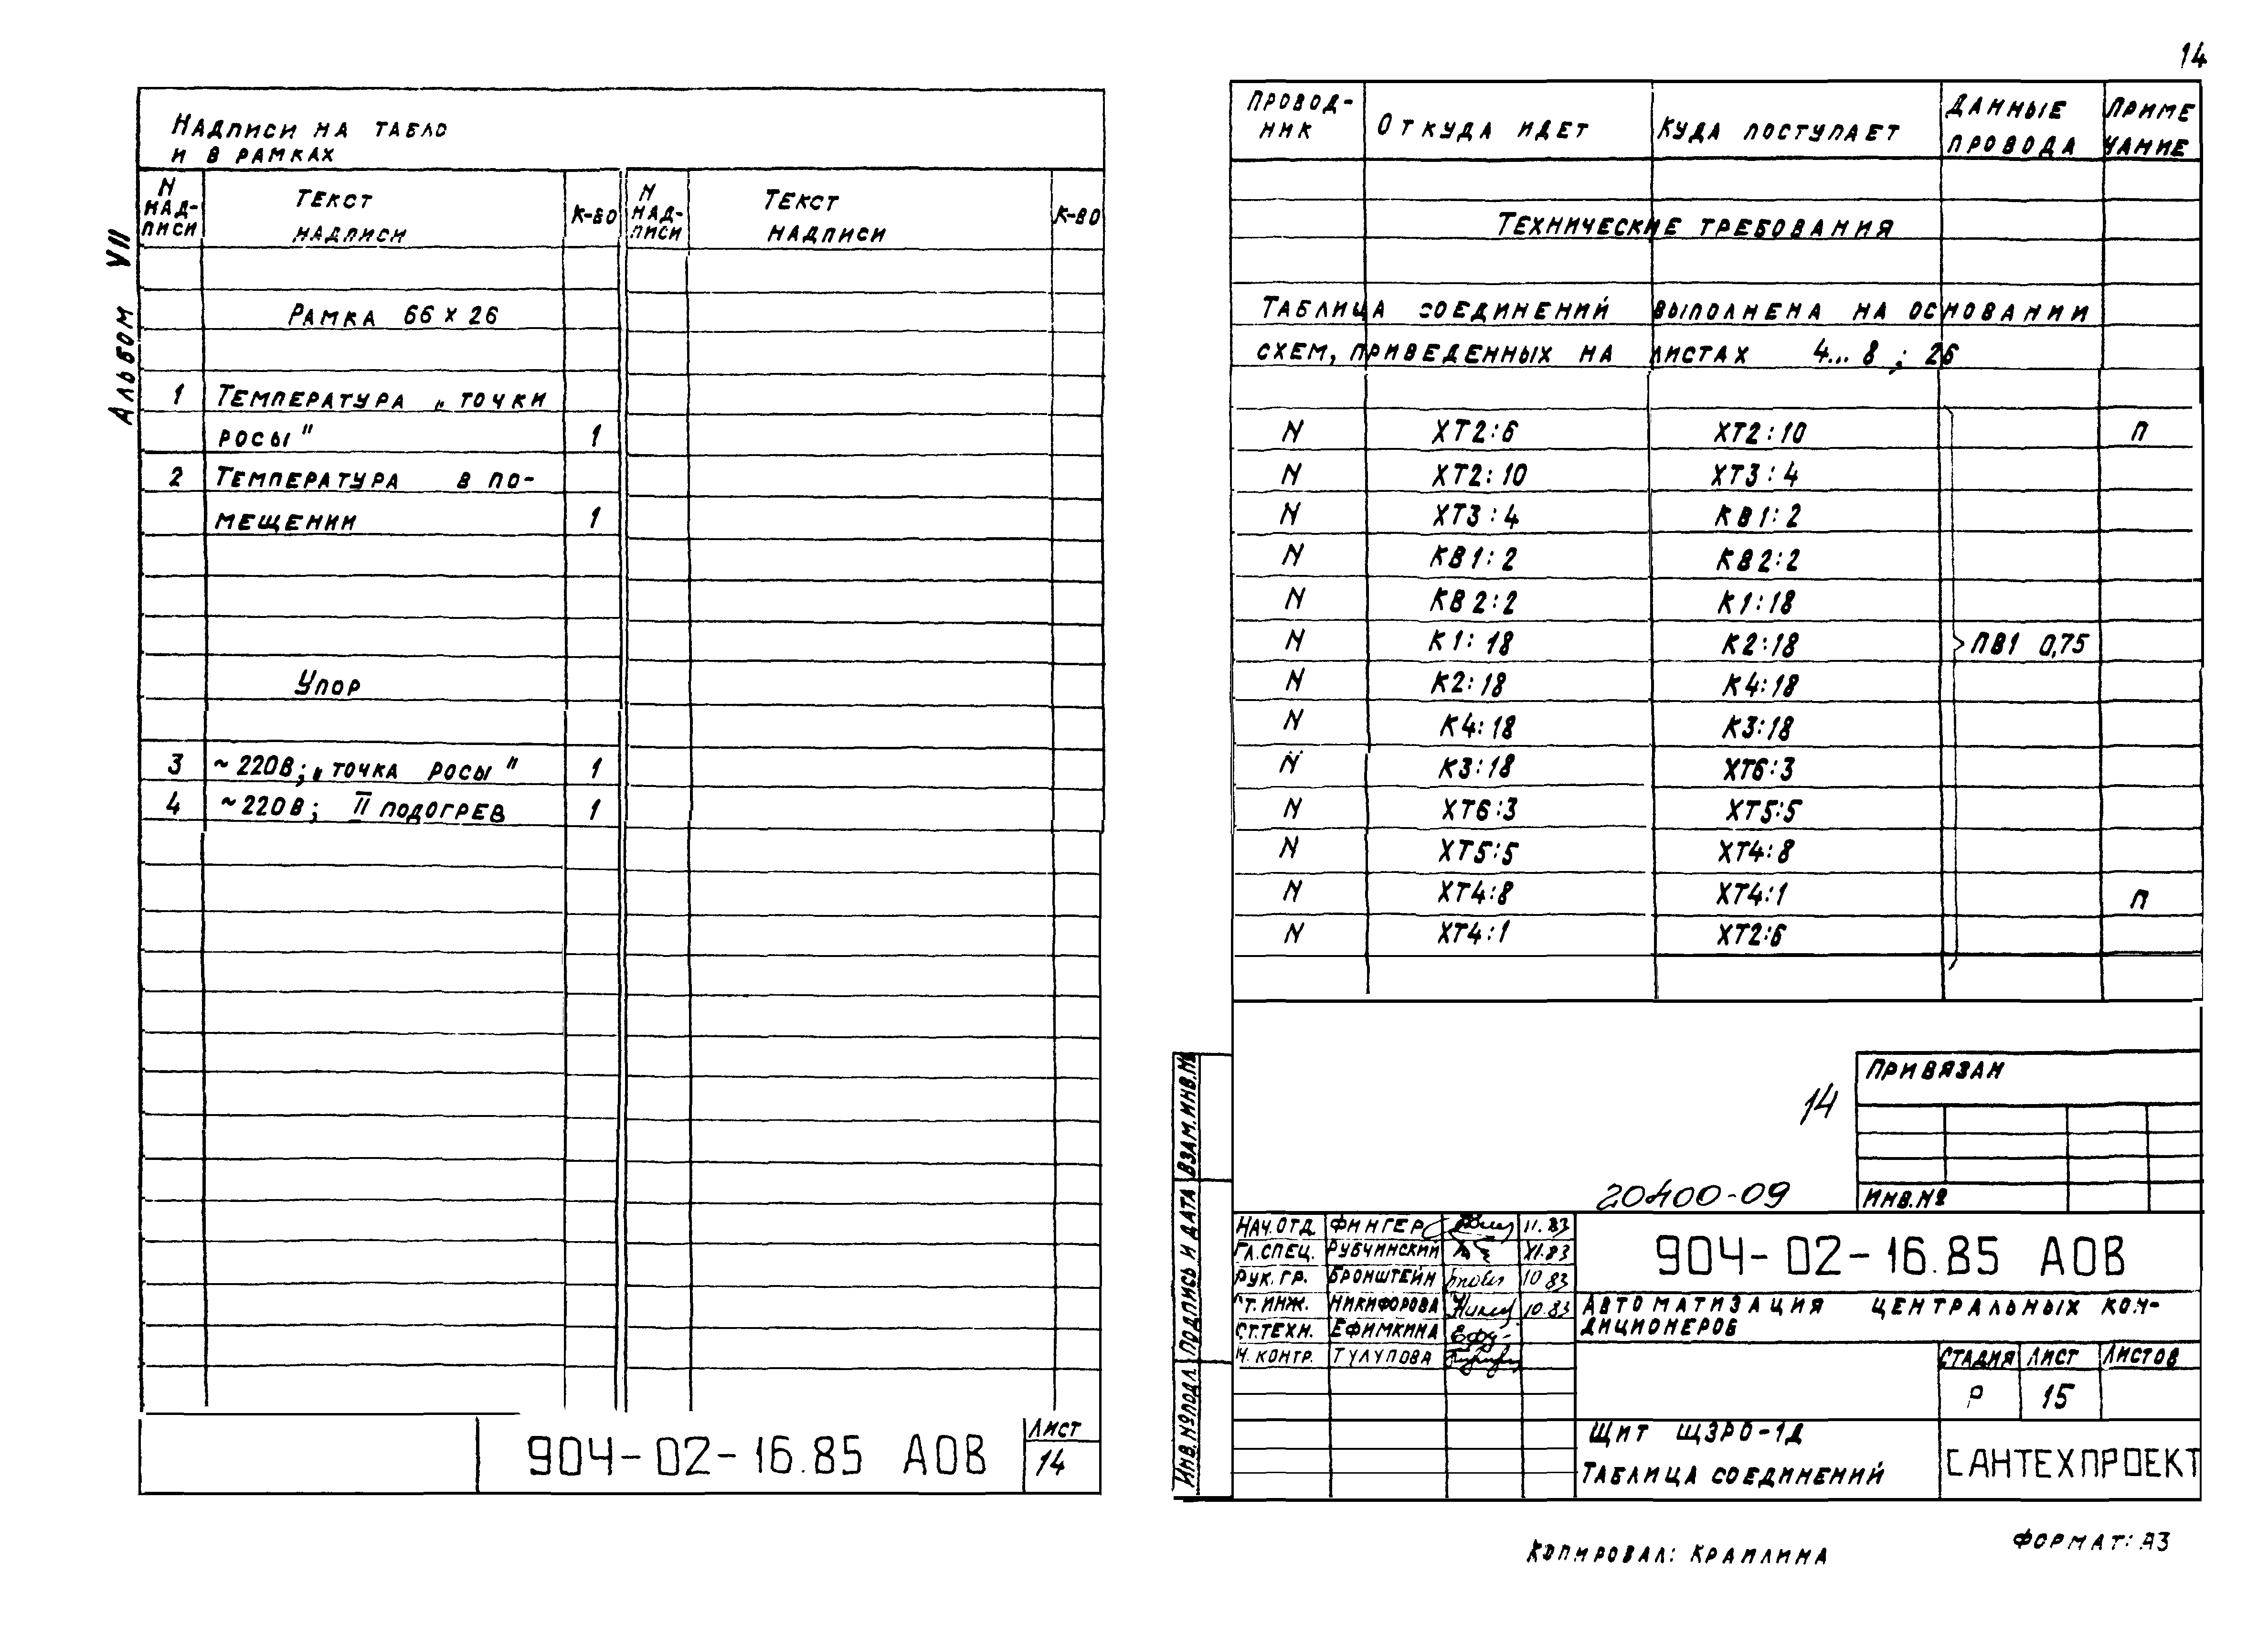 14
Альбом VII
Надписи на табло
и в рамках
N надписи | Текст надписи | К-во | N надписи | Текст надписи | К-во
Рамка 66 х 26
1 Температура „точки
росы" 1
2 Температура в по-
мещении 1
Упор
3 ~220В; „точка росы" 1
4 ~220В; II подогрев 1
904-02-16.85 АОВ
Лист
14
Провод-
ник | Откуда идет | Куда поступает | Данные
провода | Приме
чание
Технические требования
Таблица соединений выполнена на основании
схем, приведенных на листах 4...8 ; 26
N ХТ2:6 ХТ2:10 П
N ХТ2:10 ХТ3:4
N ХТ3:4 КВ1:2
N КВ1:2 КВ2:2
N КВ2:2 К1:18
N К1:18 К2:18 ПВ1 0,75
N К2:18 К4:18
N К4:18 К3:18
N К3:18 ХТ6:3
N ХТ6:3 ХТ5:5
N ХТ5:5 ХТ4:8
N ХТ4:8 ХТ4:1 П
N ХТ4:1 ХТ2:6
Привязан
14
20400-09
Инв.№
Взам.инв.№
Подпись и дата
Инв.№подл
Нач.отд Фингер 11.83
Гл.спец. Рубчинский XI.83
Рук.гр. Бронштейн 10 83
Ст.инж. Никифорова 10.83
Ст.техн. Ефимкина
Н.контр. Тулупова
904-02-16.85 АОВ
Автоматизация центральных кон-
диционеров
Стадия Лист Листов
Р 15
Щит ЩЗРО-1Д
Таблица соединений
САНТЕХПРОЕКТ
Копировал: Краилина
Формат: А3